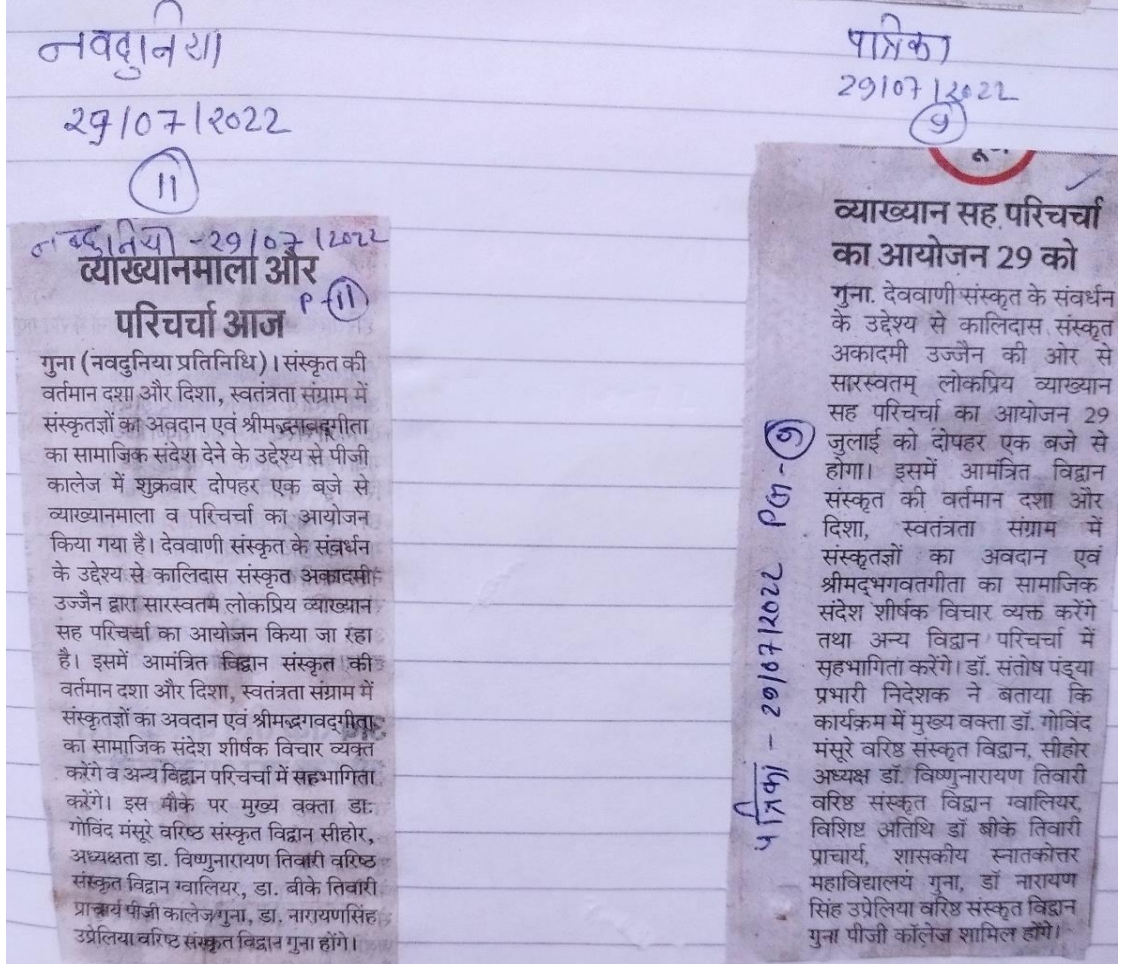 नवदुनिया
29/07/2022
11
नवदुनिया - 29/07/2022
व्याख्यानमाला और
P-11
परिचर्चा आज
गुना (नवदुनिया प्रतिनिधि)। संस्कृत की
वर्तमान दशा और दिशा, स्वतंत्रता संग्राम में
संस्कृतज्ञों का अवदान एवं श्रीमद्भगवद्गीता
का सामाजिक संदेश देने के उद्देश्य से पीजी
कालेज में शुक्रवार दोपहर एक बजे से
व्याख्यानमाला व परिचर्चा का आयोजन
किया गया है। देववाणी संस्कृत के संवर्धन
के उद्देश्य से कालिदास संस्कृत अकादमी
उज्जैन द्वारा सारस्वतम लोकप्रिय व्याख्यान
सह परिचर्चा का आयोजन किया जा रहा
है। इसमें आमंत्रित विद्वान संस्कृत की
वर्तमान दशा और दिशा, स्वतंत्रता संग्राम में
संस्कृतज्ञों का अवदान एवं श्रीमद्भगवद्गीता
का सामाजिक संदेश शीर्षक विचार व्यक्त
करेंगे व अन्य विद्वान परिचर्चा में सहभागिता
करेंगे। इस मौके पर मुख्य वक्ता डा.
गोविंद मंसूरे वरिष्ठ संस्कृत विद्वान सीहोर,
अध्यक्षता डा. विष्णुनारायण तिवारी वरिष्ठ
संस्कृत विद्वान ग्वालियर, डा. बीके तिवारी
प्राचार्य पीजी कालेज गुना, डा. नारायणसिंह
उप्रेलिया वरिष्ठ संस्कृत विद्वान गुना होंगे।
पत्रिका
29/07/2022
9
व्याख्यान सह परिचर्चा
का आयोजन 29 को
गुना. देववाणी संस्कृत के संवर्धन
के उद्देश्य से कालिदास संस्कृत
अकादमी उज्जैन की ओर से
सारस्वतम् लोकप्रिय व्याख्यान
सह परिचर्चा का आयोजन 29
जुलाई को दोपहर एक बजे से
होगा। इसमें आमंत्रित विद्वान
संस्कृत की वर्तमान दशा और
दिशा, स्वतंत्रता संग्राम में
संस्कृतज्ञों का अवदान एवं
श्रीमद्भगवतगीता का सामाजिक
संदेश शीर्षक विचार व्यक्त करेंगे
तथा अन्य विद्वान परिचर्चा में
सहभागिता करेंगे। डॉ. संतोष पंड्या
प्रभारी निदेशक ने बताया कि
कार्यक्रम में मुख्य वक्ता डॉ. गोविंद
मंसूरे वरिष्ठ संस्कृत विद्वान, सीहोर
अध्यक्ष डॉ. विष्णुनारायण तिवारी
वरिष्ठ संस्कृत विद्वान ग्वालियर,
विशिष्ट अतिथि डॉ बीके तिवारी
प्राचार्य, शासकीय स्नातकोत्तर
महाविद्यालय गुना, डॉ नारायण
सिंह उप्रेलिया वरिष्ठ संस्कृत विद्वान
गुना पीजी कॉलेज शामिल होंगे।
पत्रिका - 29/07/2022 PG-9